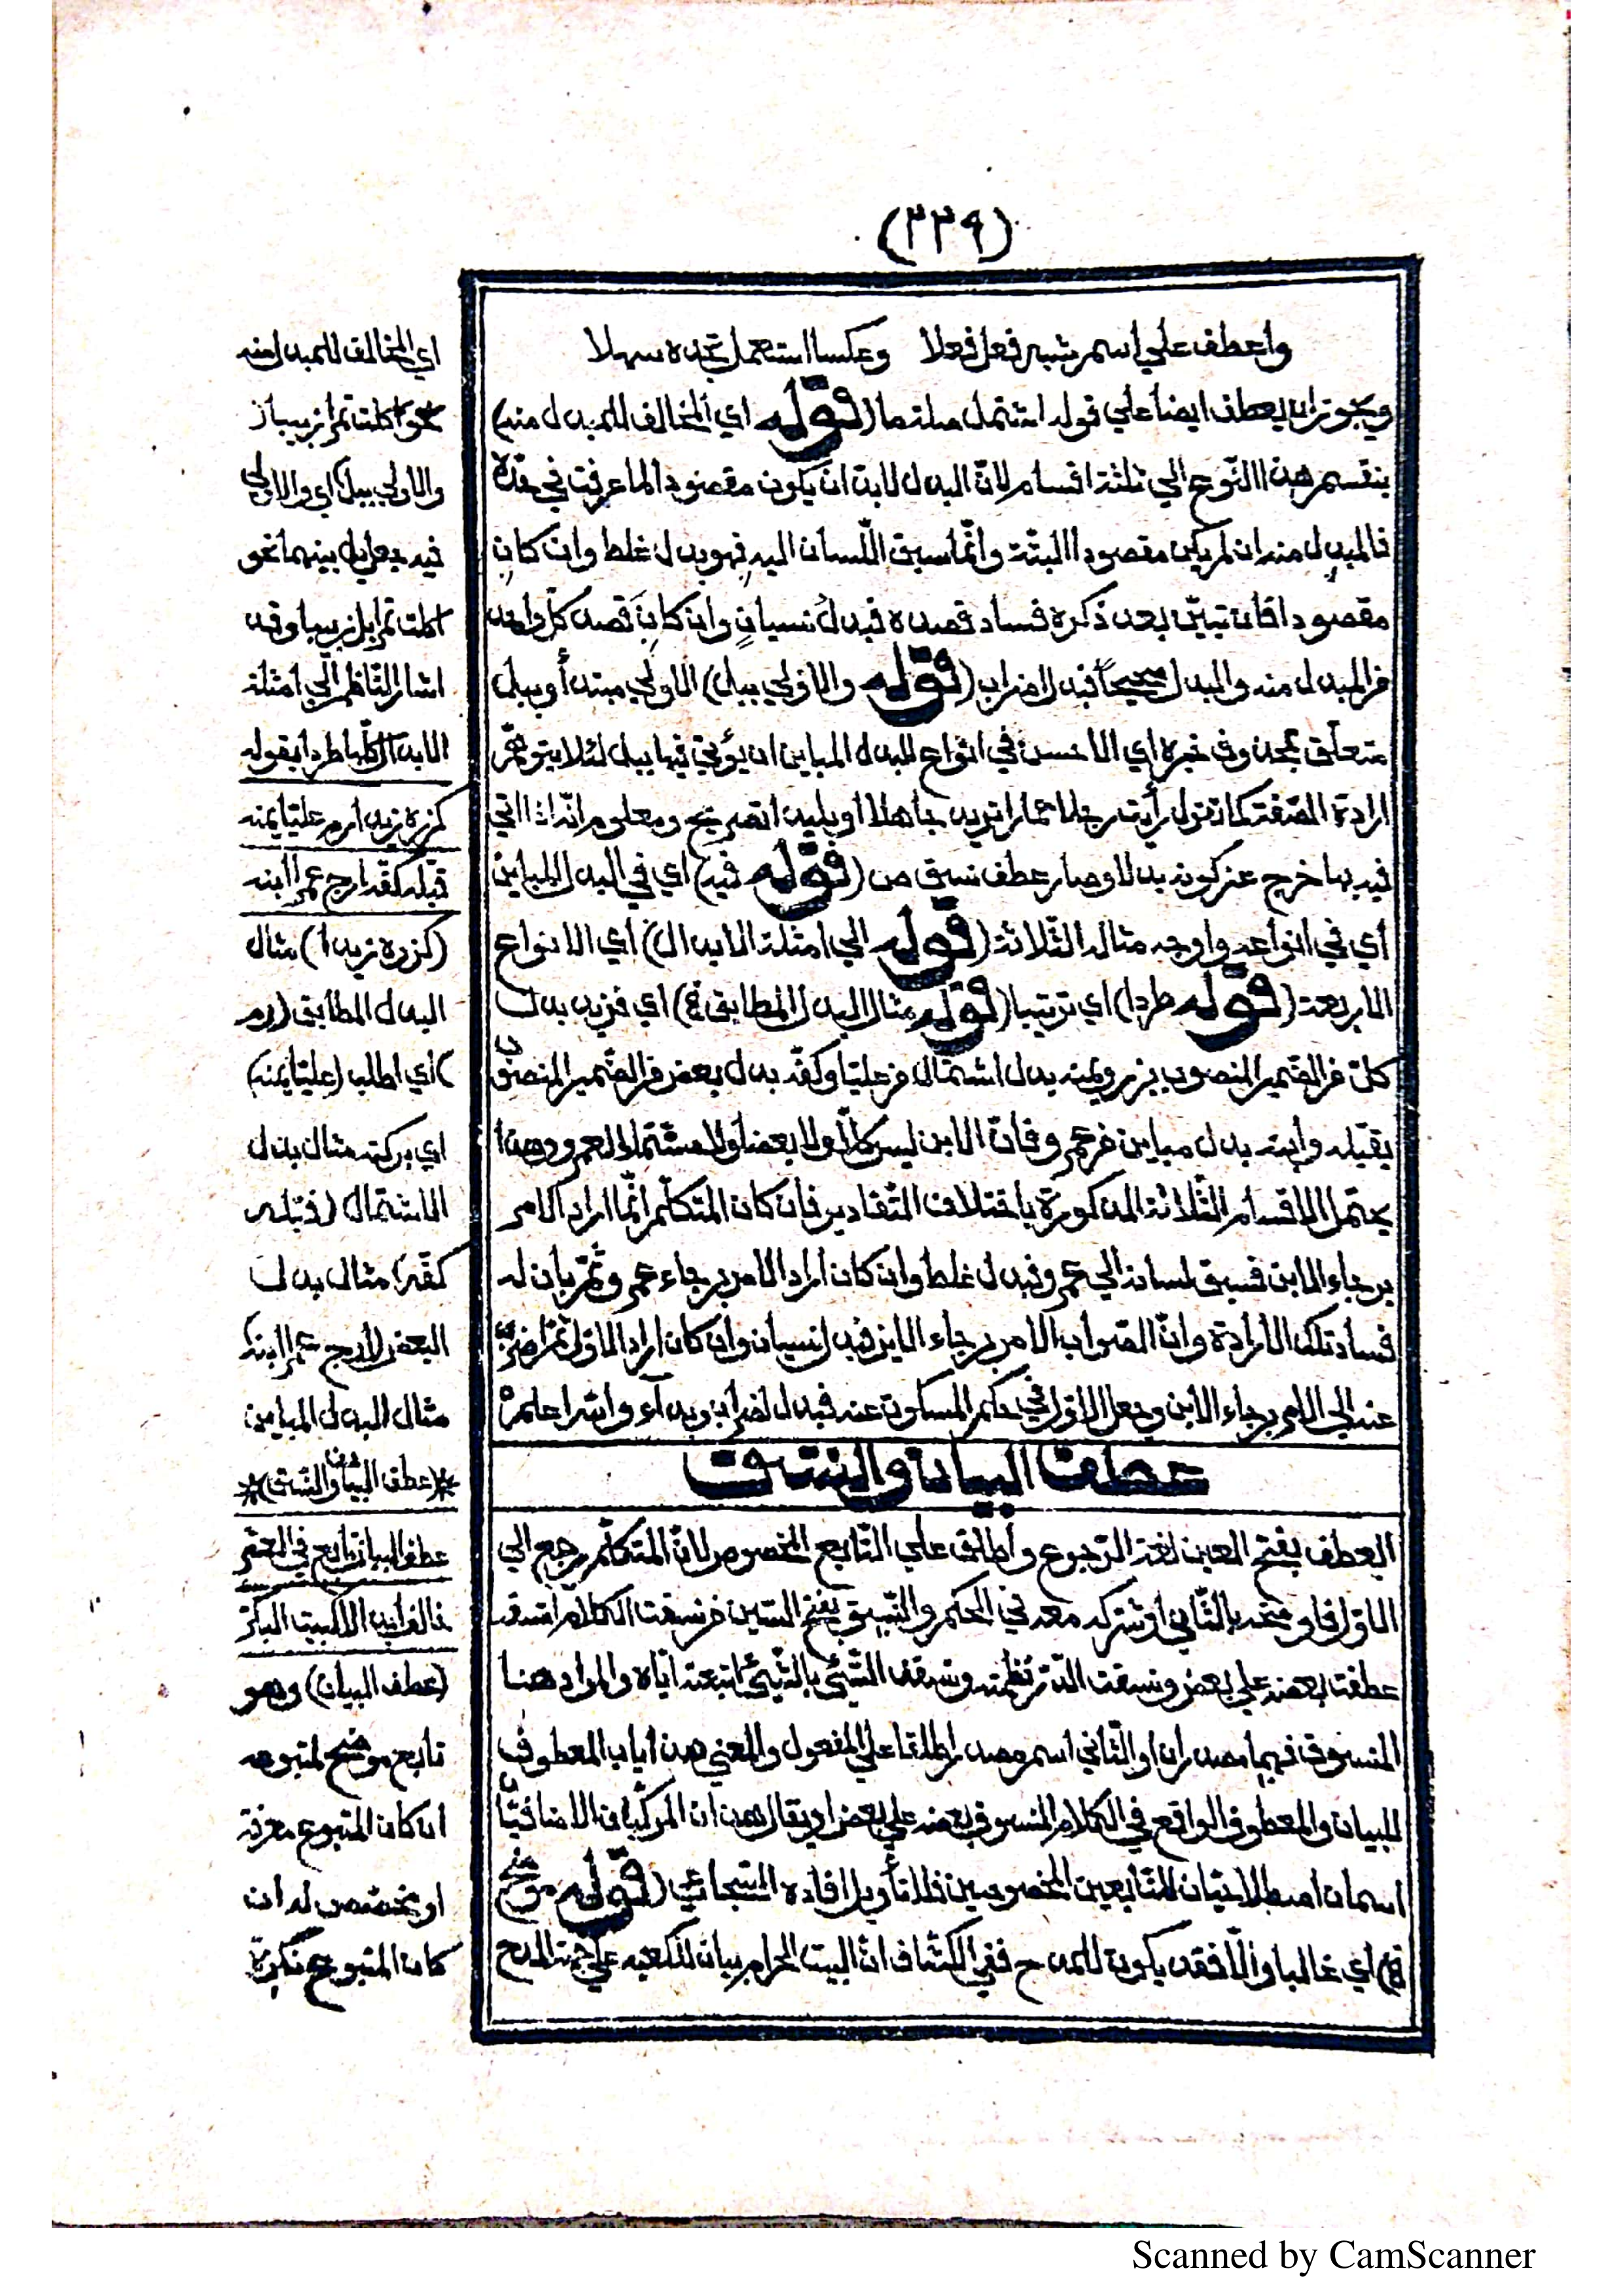 (٢٢٩)
واعطف علي اسم شبه فعل فعلا وعكسا استعمل تجده سهلا
ويجوز ان يعطف ايضا علي قوله اشتمل (قوله اي المخالف للمبدل منه)
ينقسم هذا النوع الي ثلثة اقسام لانّ البدل لابدّ ان يكون مقصودا لما عرفت في حدّه
فالمبدل منه ان لم يكن مقصودا البتّة وانّما سبق اللّسان اليه فهو بدل غلط وان كان
مقصودا فان تبيّن بعد ذكره فساد قصده فبدل نسيان وان كان قصد كلّ واحد
من المبدل منه والبدل صحيحاً فبدل اضراب (قوله والاولي ببل) الاولي مبتدأ وببل
متعلّق بمحذوف خبره اي الاحسن في انواع البدل المباين ان يؤتي فيها ببل لئلا يتوهّم
ارادة الصّفة كما تقول رأيت رجلا حمارا تريد جاهلا او بليدا تصريح ومعلوم انّه اذا اتي
فيه بها خرج عن كونه بدلا وصار عطف نسق ص (قوله فيه) اي في البدل المباين
أي في انواعه واوجه مثاله الثّلاثة (قوله الي امثلة الابدال) اي الانواع
الاربعة (قوله طردا) اي ترتيبا (قوله مثال البدل المطابق الخ) اي فزيد بدل
كلّ من الضّمير المنصوب بزر ويمنه بدل اشتمال من عليّا وكفّه بدل بعض من الضّمير المنصوب
بقبّله وابنه بدل مباين من عمرو فانّ الابن ليس كلّاً ولا بعضا ولا مشتملا لعمرو وهذا
يحتمل الاقسام الثّلاثة المذكورة باختلاف التّقادير فان كان المتكلّم انّما اراد الامر
برجاء الابن فسبق لسانه الي عمرو فبدل غلط وان كان اراد الامر برجاء عمرو ثمّ بان له
فساد تلك الارادة وانّ الصّواب الامر برجاء الابن فبدل نسيان وان كان اراد الاول ثمّ اضرب
عنه الي الامر برجاء الابن وجعل الاوّل في حكم المسكوت عنه فبدل اضراب وبداء واللّه اعلم
عطف البيان والنسق
العطف بفتح العين لغة الرّجوع وأطلق علي التّابع المخصوص لانّ المتكلّم رجع الي
الاوّل فاوضحه بالثّاني او شركه معه في الحكم والنّسق بفتح السّين من نسقت الكلام انسقه
عطفت بعضه علي بعض ونسقت الدّر نظمته ونسقت الشّيئ بالشّيئ اتبعته ايّاه والمراد هنا
المنسوق فهما مصدران او الثّاني اسم مصدر اطلقا علي المفعول والمعني هذا باب المعطوف
للبيان والمعطوف الواقع في الكلام المنسوق بعضه علي بعض او يقال هذان المركّبان الاضافيّان
اسمان اصطلاحيّان للتّابعين المخصوصين فلا تأويل افاده السّجاعي (قوله موضح
الخ) اي غالبا والّا فقد يكون للمدح ففي الكشّاف انّ البيت الحرام بيان للكعبه علي جهة المدح
اي المخالف للمبدل منه
نحو اكلت تمرا زبيبا
والاولي ببل اي والاولي
فيه
بينهما نحو
اكلت تمرا بل زبيبا وقد
اشار النّاظم الي امثلة
الابدال كلّها طردا بقوله
كزره زيدا رم عليّا يمنه
قبّله كفّه ارج عمرا ابنه
(كزره زيدا) مثال
البدل المطابق (رم
) اي اطلب (عليّا يمنه)
اي بركته مثال بدل
الاشتمال (قبّله
كفّه) مثال بدل
البعض (ارج عمرا ابنه)
مثال البدل المباين
*(هذا عطف البيان والنّسق)*
عطف البيان تابع في المعتبر
خالف
(عطف البيان) وهو
تابع موضح لمتبوعه
ان كان المتبوع معرفة
او مخصّص له ان
كان المتبوع نكرة
Scanned by CamScanner